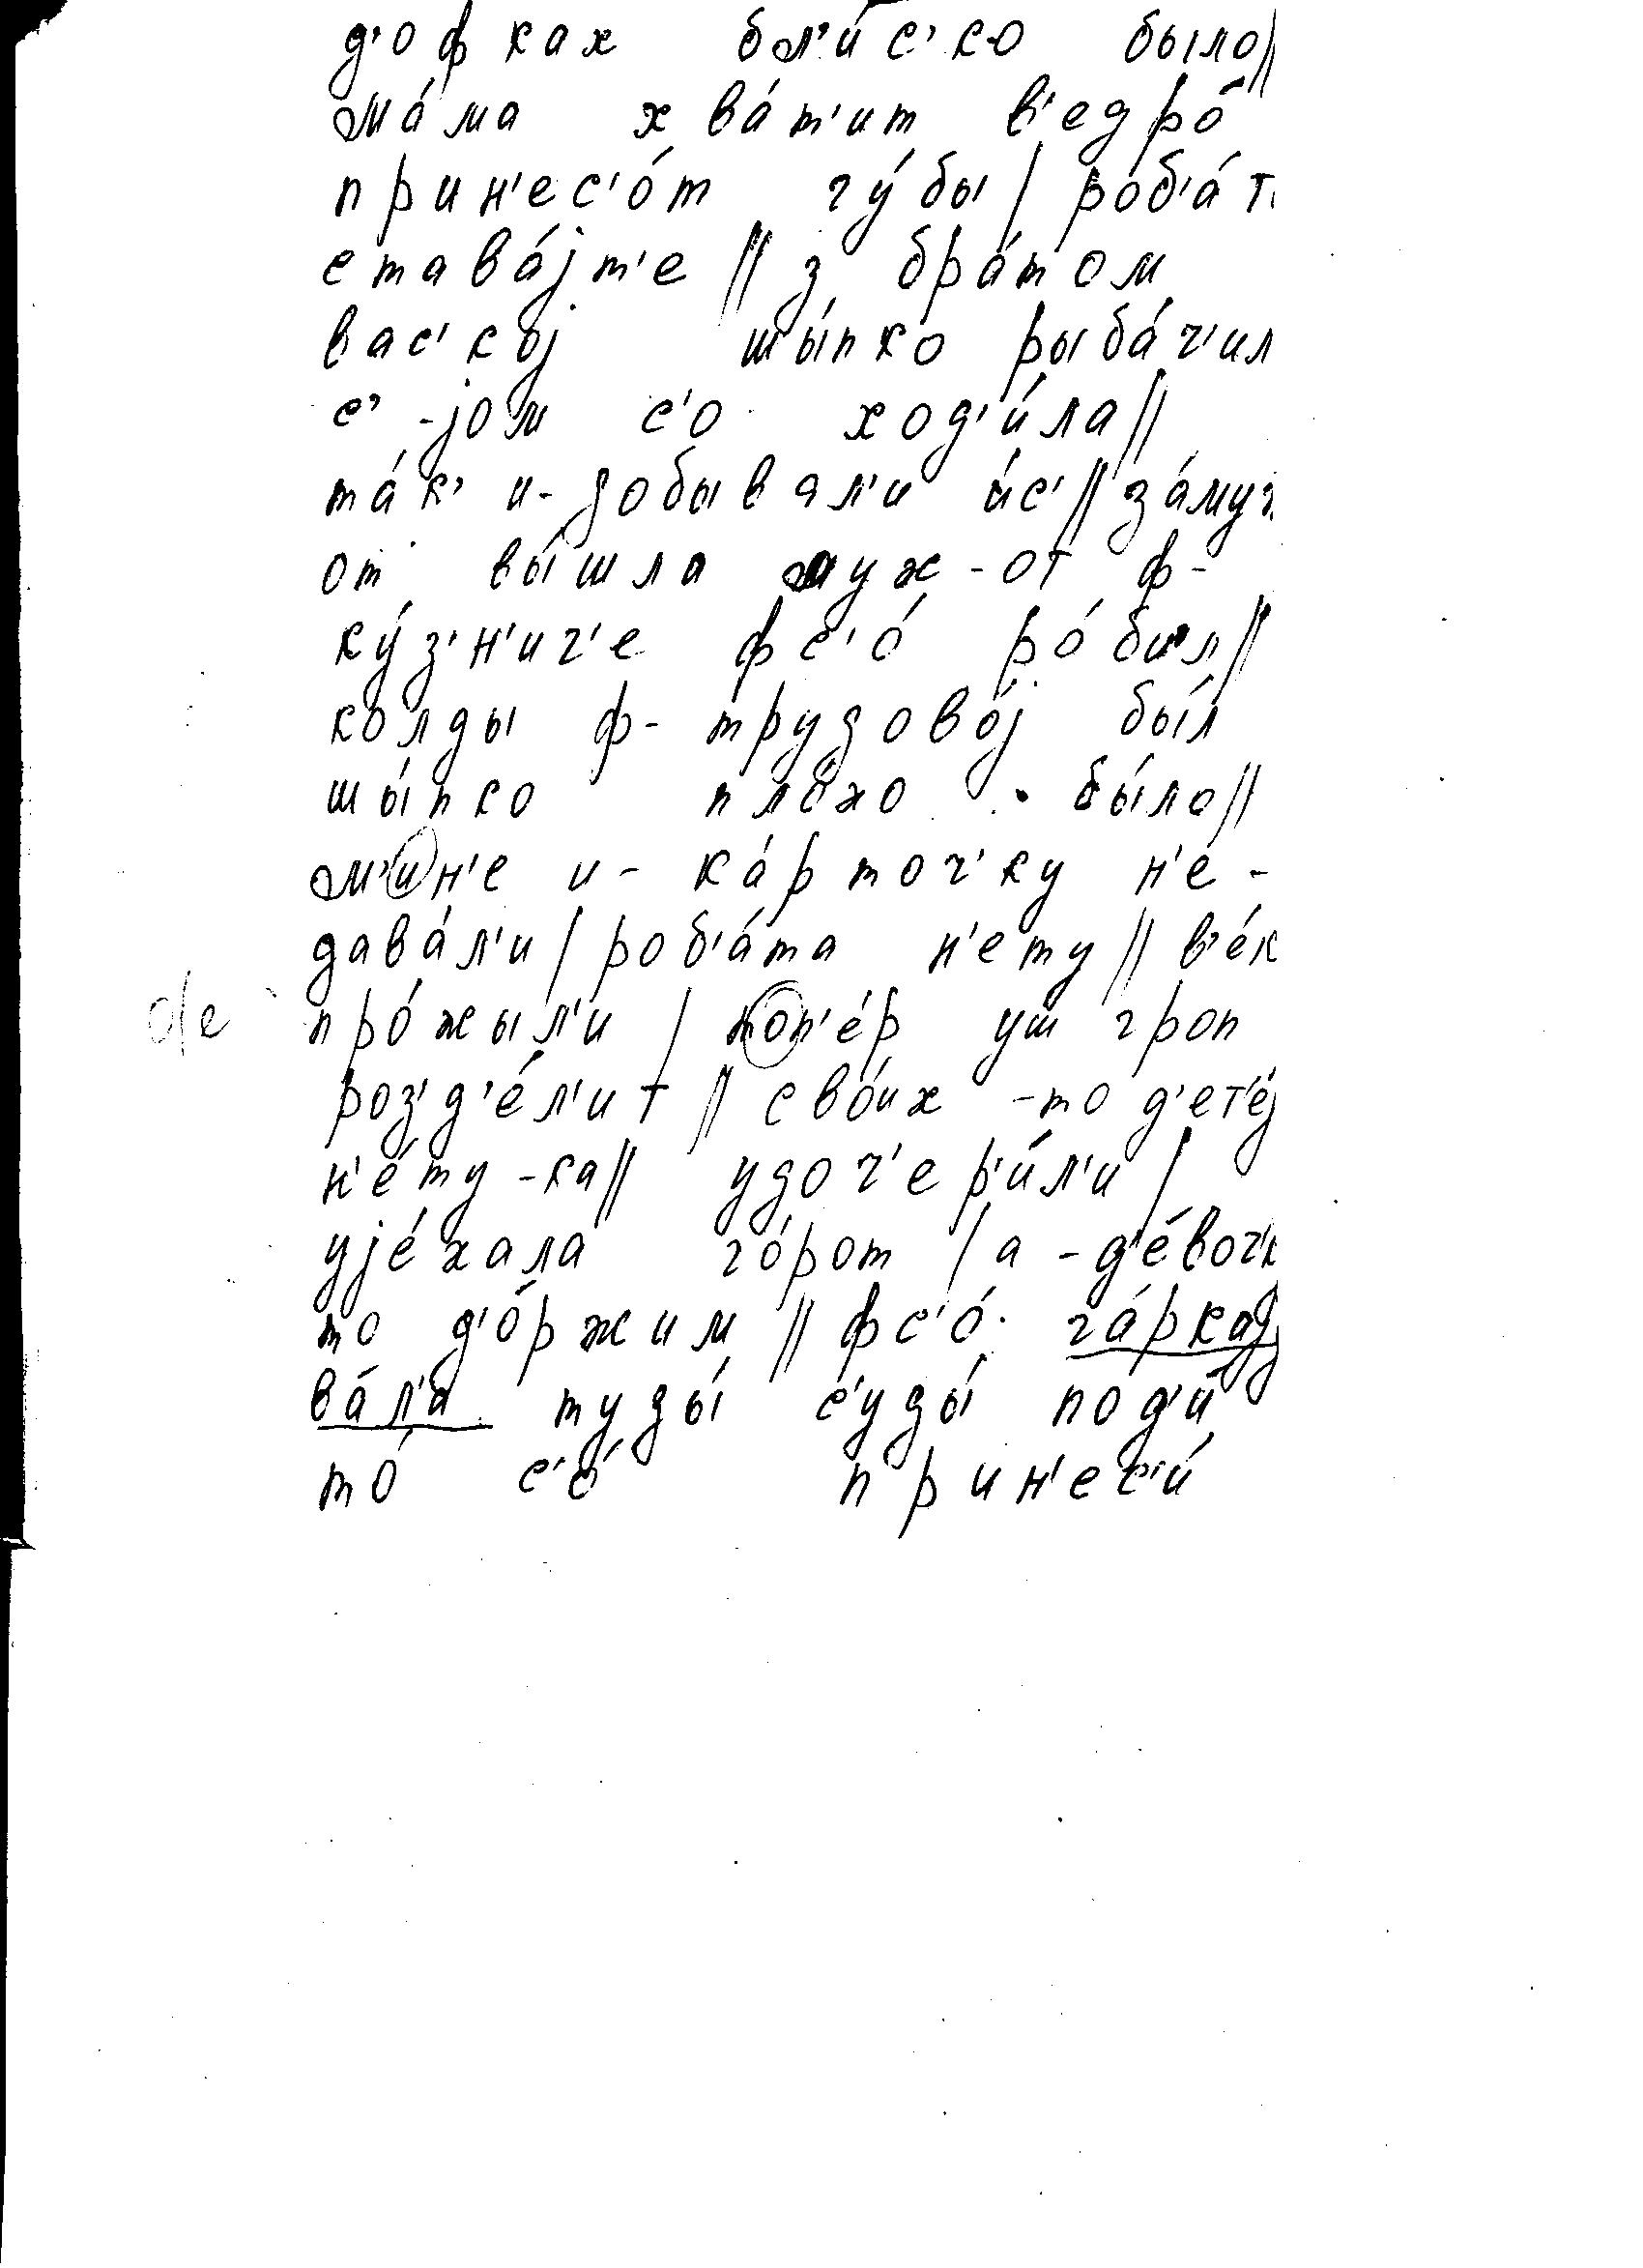 д'офках бл'и́с'ко было||
ма́ма хва́т'ит в'едро́
прин'ес'о́т гу́бы | роб'а́т
става́јт'е || з бра́том
вас'кој шы́пко рыба́чил
с'-јом с'о ход'и́ла ||
та́к' и-добывал'и и́с' || за́муж
от вы́шла муж-от ф-
ку́з'н'иг'е фс'о́ ро́бил ||
колды ф-трудово́ј бы́л
шы́пко пло́хо бы́ло ||
м'ин'е и-ка́рточ'ку н'е́-
дава́л'и | роб'а́та н'ету || в'е́к
про́жыл'и | топ'е́р уш гроп
роз'д'е́л'ит || сво́их-то д'ет'е́ј
н'е́ту-ка || удоч'ер'и́л'и |
ује́хала го́рот | а-д'е́воч'к
то д'о́ржим || фс'о́ га́ркај
ва́л'и туды́ с'уды́ под'и́
то́ с'о́ прин'ес'и́
о/е